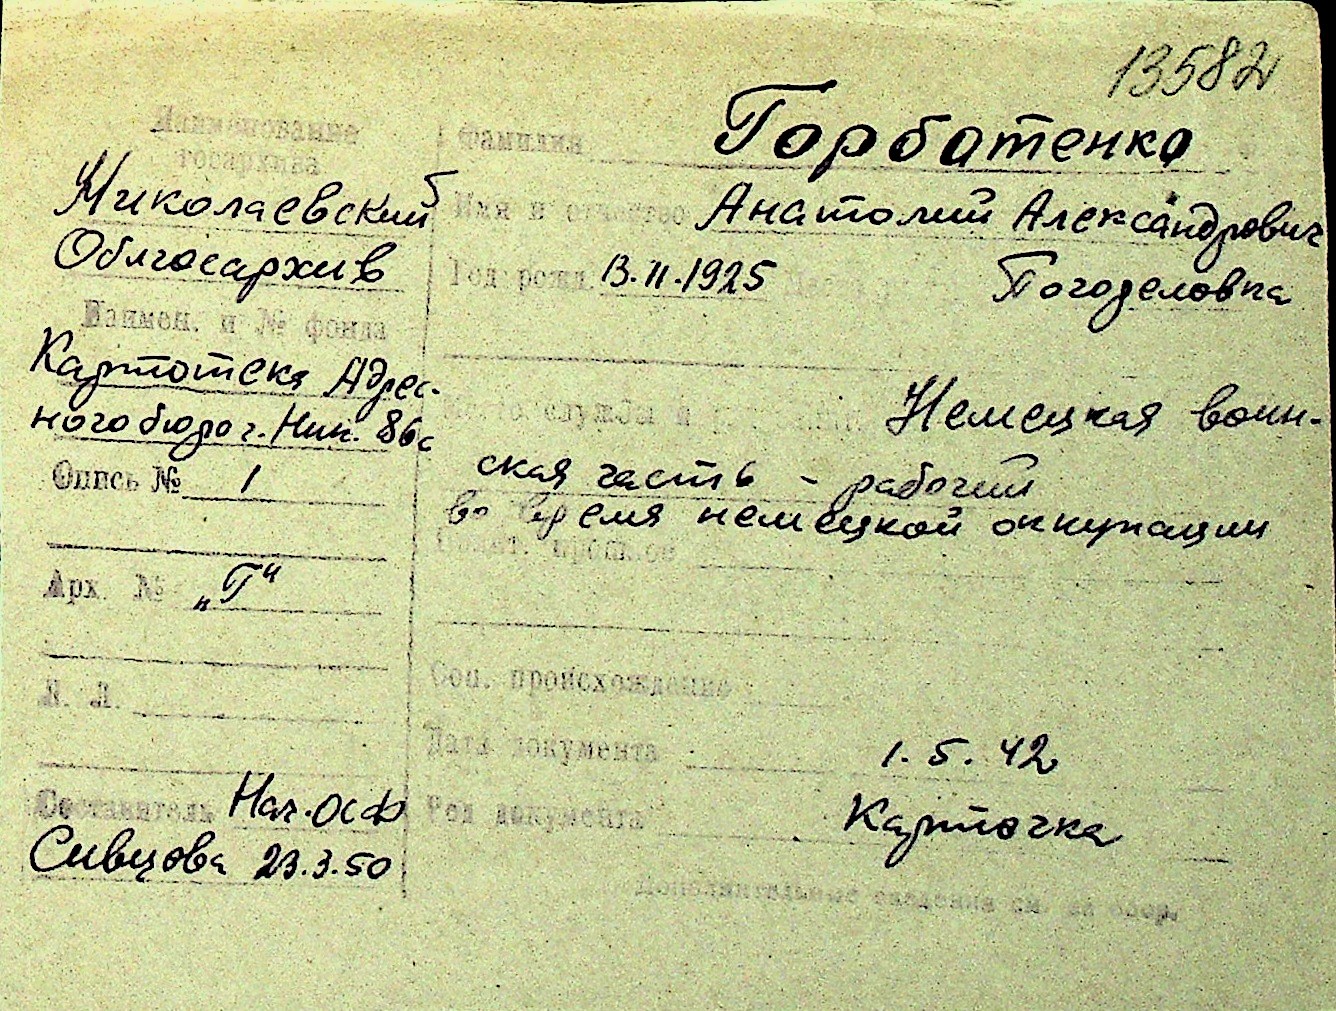 13582
Наименование
госархива
Николаевский
Облгосархив
Наимен. и № фонда
Картотека Адрес-
ного бюро г. Ник. 86с
Опись № 1
Арх. № „Г“
Л. Л.
Составитель Нач. ОСФ
Сивцова 23.3.50
Фамилия Горбатенко
Имя и отчество Анатолий Александрович
Год рожд. 13.11.1925
Место службы и Немецкая воин-
ская часть - рабочий
во время немецкой оккупации
Полит. прошлое
Соц. происхождение
Дата документа 1.5.42
Род документа Карточка
Дополнительные сведения см. на обор.